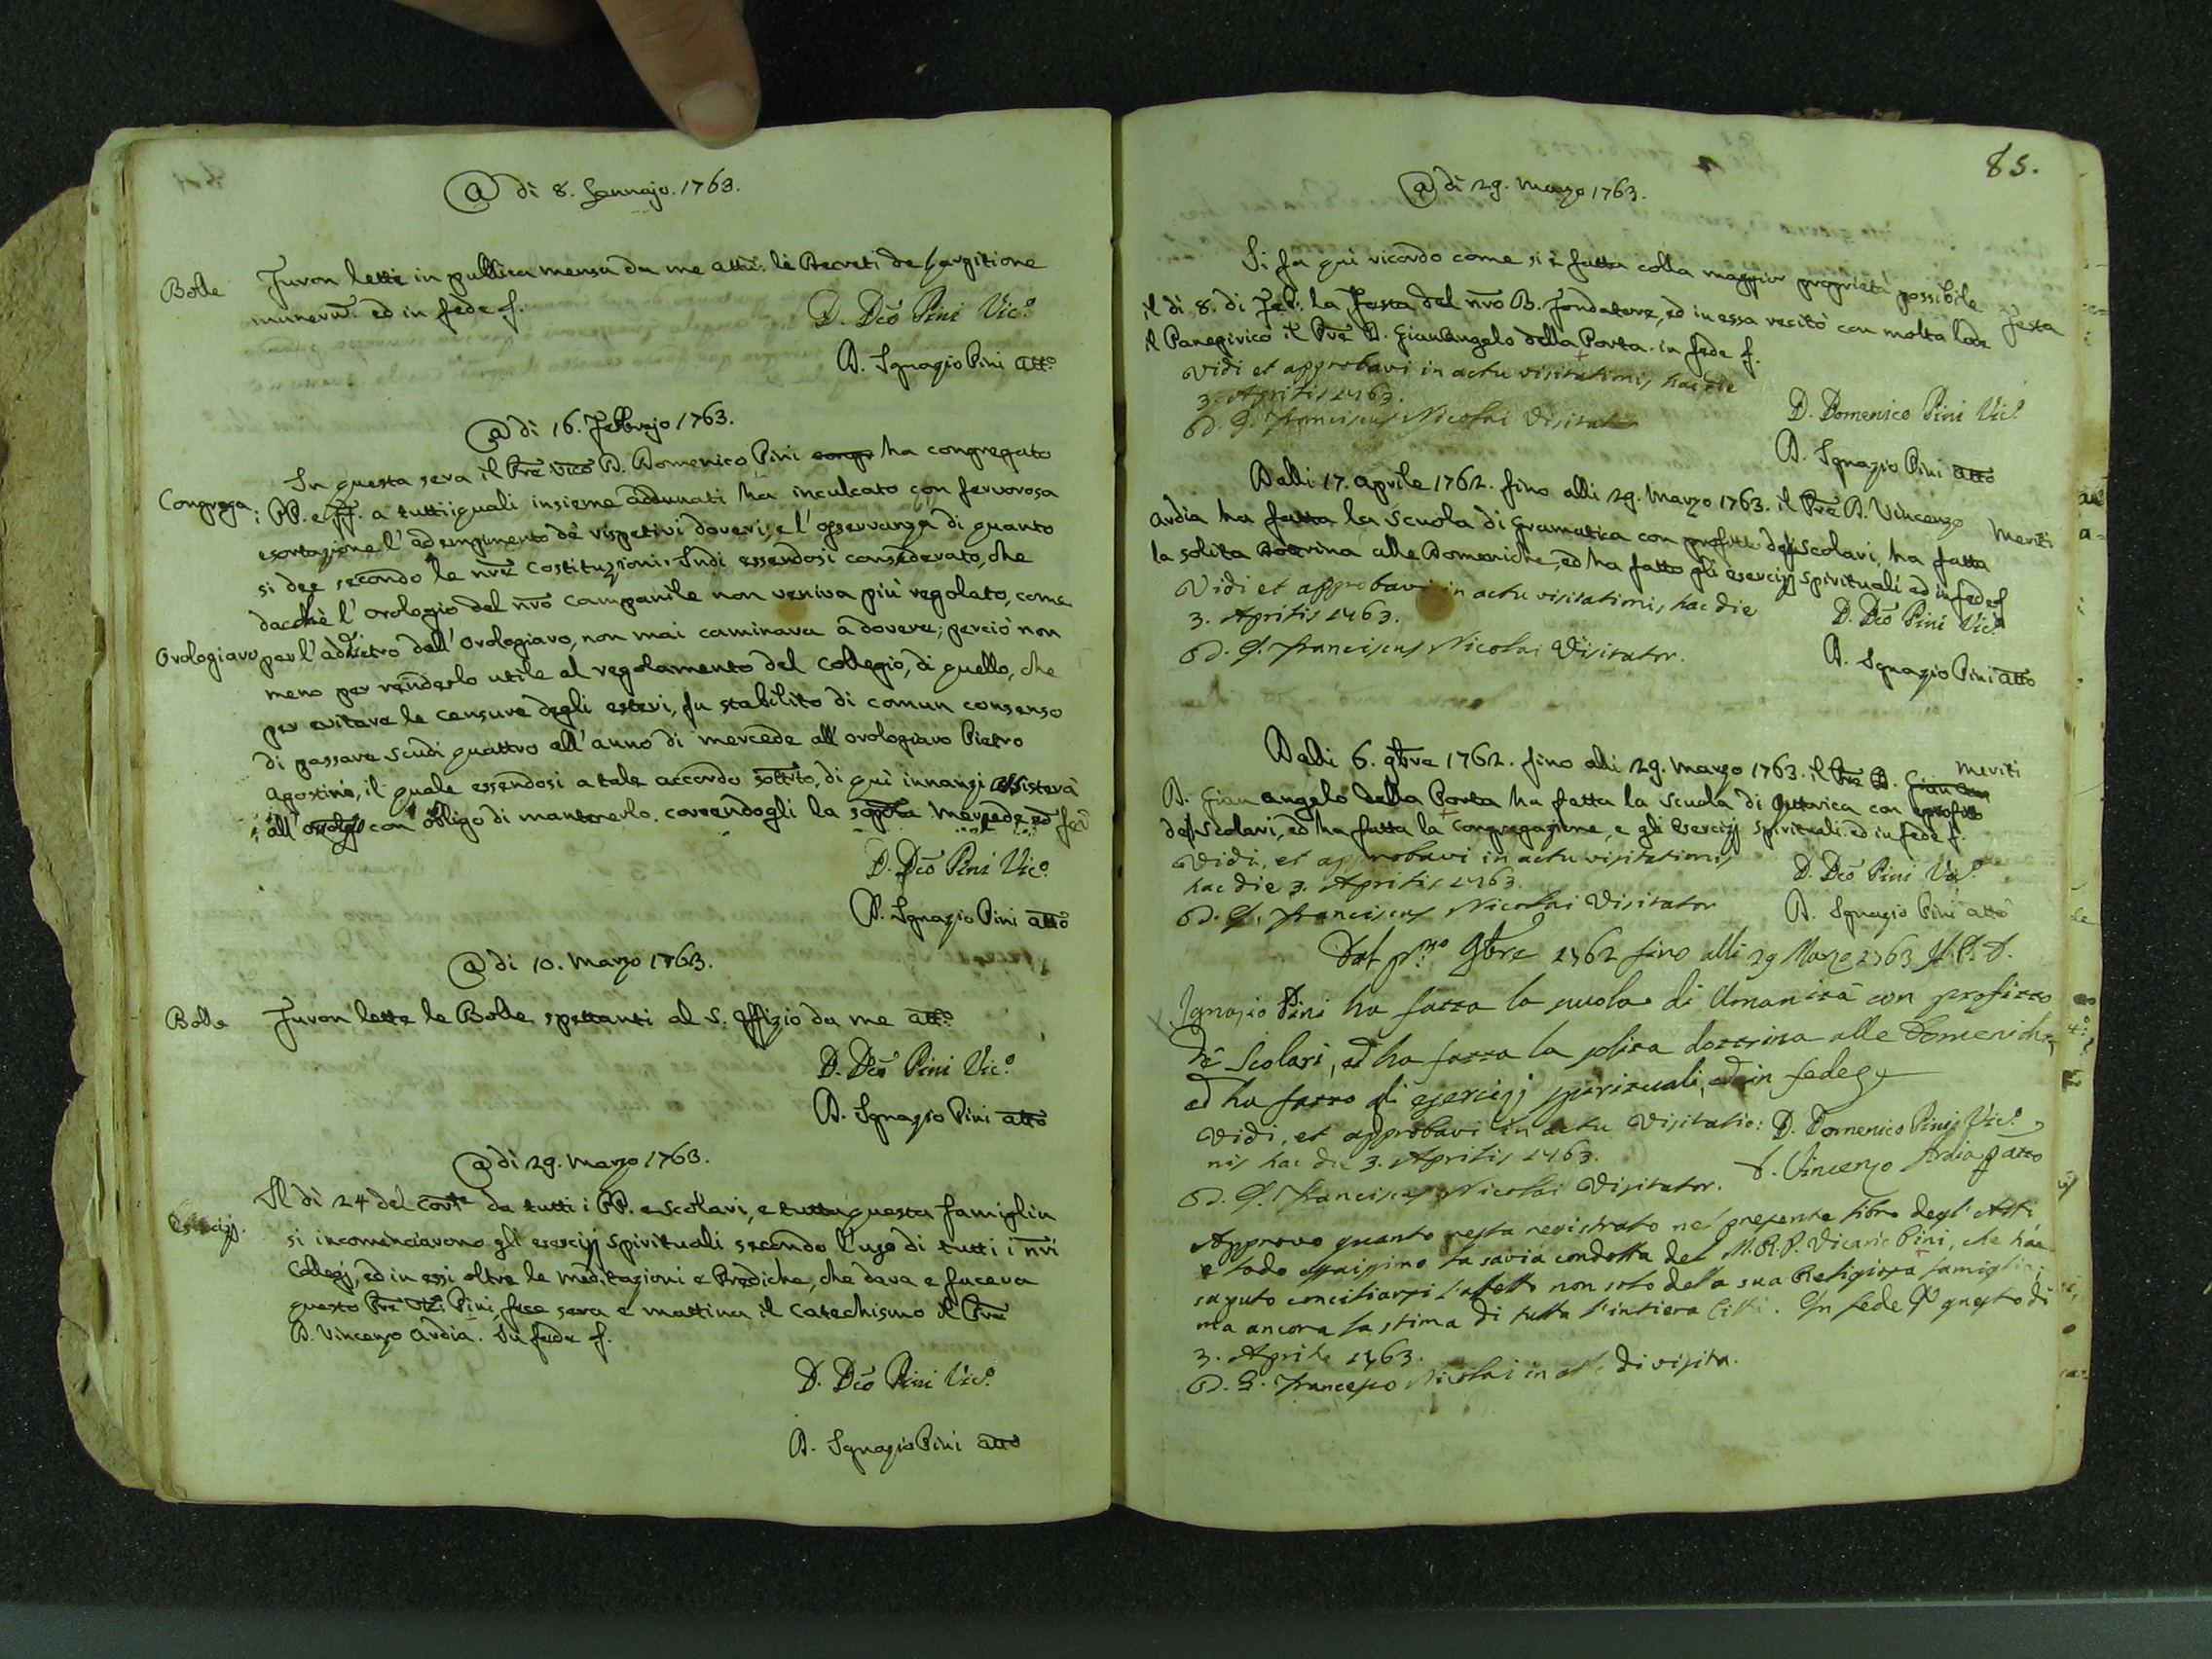 @ di 8. Gennajo. 1763.
Bolle
Furon lette in publica mensa da me attu.° li Decreti de largitione
munerum. ed in fede f.
D. Dco Pini Vic.°
D. Ignazio Pini att.°
@ di 16. Febbrajo 1763.
In questa sera il Pre Vico D. Domenico Pini ha congregato
Congrega
i PP. e ff. a tutti i quali insieme addunati ha inculcato con fervorosa
esortazione l'adempimento de rispetivi doveri, e l'osservanza di quanto
si dee secondo le nre Costituzioni. Indi essendosi considerato, che
dacchè l'orologio del nro Campanile non veniva più regolato, come
Orologiaro
per l'addietro dall'Orologiaro, non mai caminava a dovere; perciò non
meno per renderlo utile al regolamento del Collegio, di quello, che
per evitare le censure degli esteri, fu stabilito di comun consenso
di passare scudi quattro all'anno di mercede all'orologiaro Pietro
Agostino, il quale essendosi a tale accordo sottrto, di qui innanzi assisterà
all'orolgio con obligo di mantenerlo. correndogli la sopta mercede ed
D. Dco Pini Vic.°
D. Ignazio Pini atto
@ di 10. Marzo 1763.
Bolle
Furon lette le Bolle spettanti al S. Offizio da me att.°
D. Dco Pini Vic.°
D. Ignazio Pini atto
@ di 29. Marzo 1763.
Esercizj.
Il di 24 del corte da tutti i PP. e scolari, e tutta questa famiglia
si incominciarono gli esercizj spirituali secondo l'uso di tutti i nri
Collegj, ed in essi oltre le meditazioni e Prediche, che dava e faceva
questo Pre Vic: Pini, fece sera e mattina il Catechismo il Pre
D. Vincenzo Ardia. In fede f.
D. Dco Pini Vic.°
D. Ignazio Pini atto
85.
@ di 29. Marzo 1763.
Si fa qui ricordo come si è fatta colla maggior proprietà possibile
Festa
il di 8. di Feb: la Festa del nro B. Fondatore, ed in essa recitò con molta lode
il Panegirico il Pre D. Gianangelo della Porta. in fede f.
Vidi et approbavi in actu visitationis hac die
3. Aprilis 1763.
D. G. Franciscus Nicolai Visitator
D. Domenico Pini Vic.°
D. Ignazio Pini atto
Dalli 17. aprile 1762. fino alli 29. Marzo 1763. il Pre D. Vincenzo
Meriti
Ardia ha fatta la scuola di Gramatica con profitto degli scolari, ha fatta
la solita Dottrina alle Domeniche, ed ha fatto gli esercizj spirituali ed in fede f
Vidi et approbavi in actu visitationis, hac die
3. Aprilis 1763.
D. G. Franciscus Nicolai Visitator.
D. Dco Pini Vic.°
D. Ignazio Pini atto
Dalli 6. 9bre 1762. fino alli 29. Marzo 1763. il Pre D. Gian
Meriti
D. Gian angelo della Porta ha fatta la scuola di Rettorica con profitto
degli scolari, ed ha fatta la Congregazione, e gli Esercizj spirituali. ed in fede f.
Vidi, et approbavi in actu visitationis
hac die 3. Aprilis 1763.
D. G. Franciscus Nicolai Visitator
D. Dco Pini Vic.°
D. Ignazio Pini atto
Dal pr.mo 9bre 1762 fino alli 29 Marzo 1763 Il P. D.
Ignazio Pini ha fatta la scuola di Umanità con profitto
de scolari, ed ha fatta la solita dottrina alle Domeniche,
ed ha fatto gli esercizj spirituali, ed in fede
Vidi, et approbavi in actu Visitatio:
nis hac die 3. Aprilis 1763.
D. G. Franciscus Nicolai Visitator.
D. Domenico Pini Vic.°
D. Vincenzo Ardia atto
Approvo quanto resta registrato nel presente libro degl'Atti
e lodo assaissimo la savia condotta del M. R. P. Vicario Pini, che ha
saputo conciliarsi l'affetto non solo della sua Religiosa famiglia,
ma ancora la stima di tutta l'intiera Città. In fede questo di
3. Aprile 1763.
D. G. Francesco Nicolai in atto di visita.